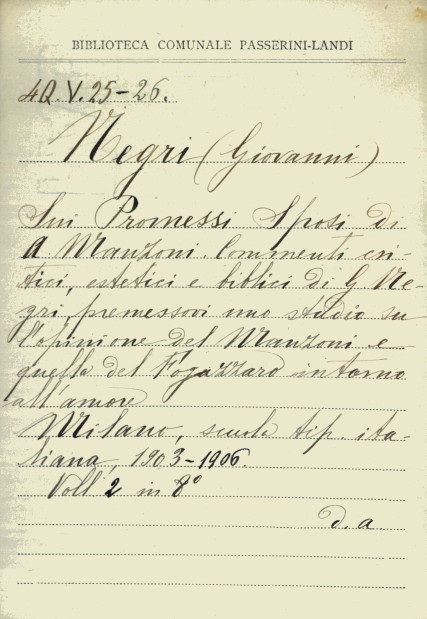 BIBLIOTECA COMUNALE PASSERINI-LANDI
4Q.V.25-26.
Negri (Giovanni)
Sui Promessi Sposi di
A Manzoni. Commenti cri-
tici, estetici e biblici di G Ne-
gri, premessovi uno studio su
l'opinione del Manzoni e
quella del Fogazzaro intorno
all'amore
Milano, scuola tip. ita-
liana, 1903-1906.
Voll 2 in 8º
d. a.